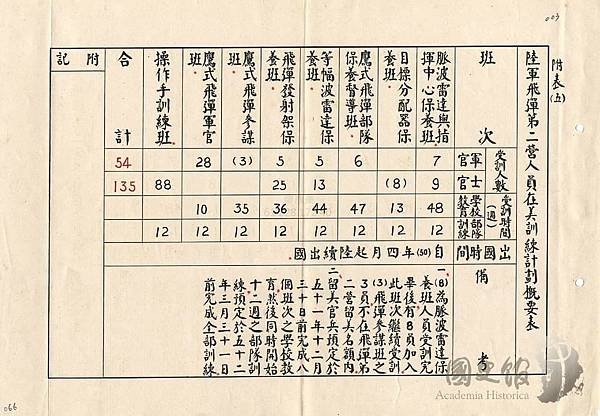 003
附表(五)
陸軍飛彈第二營人員在美訓練計劃概要表
班次
受訓人數
軍官
士官
受訓時間(週)
學校教育
部隊訓練
出國時間
備考
脈波雷達與指
揮中心保養班
7
9
48
12
目標分配器保
養班
(8)
13
12
鷹式飛彈部隊
保養督導班
6
47
12
等幅波雷達保
養班
5
13
44
12
飛彈發射架保
養班
5
25
36
12
鷹式飛彈參謀
班
(3)
35
12
鷹式飛彈軍官
班
28
10
12
操作手訓練班
88
12
合計
54
135
附記
自(50)年四月起陸續出國
一、(8)為脈波雷達保
養班人員受訓完
畢後有8員加入
此班次繼續受訓
(3)飛彈參謀班之
3員不在飛彈第
二營留美名額內
二留美官兵預定於
五十一年十二月
三十日前完成八
個班次之學校教
育然後同時開始
十二週之部隊訓
練預定於五十二
年三月三十一日
前完成全部訓練
066
國史館
Academia Historica